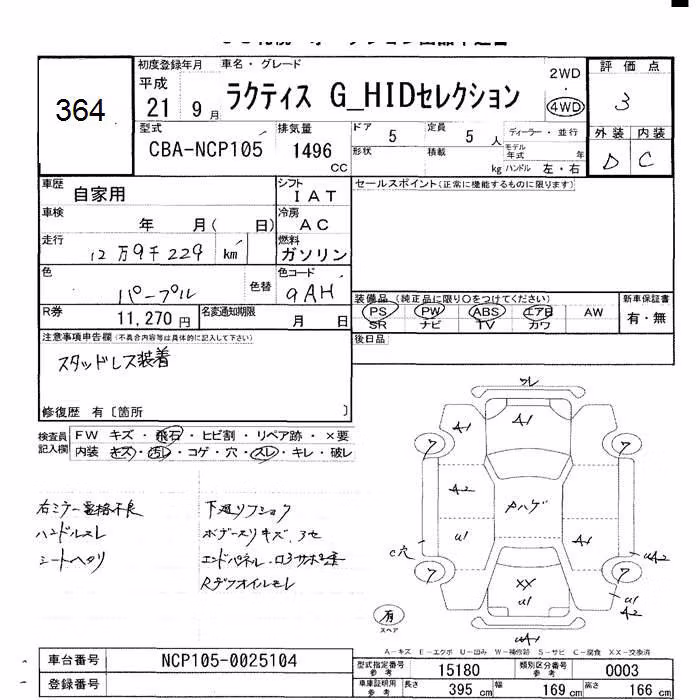 初度登録年月 車名・グレード
364 平成 21 9月 ラクティス G_HIDセレクション 2WD 4WD
評価点 3
型式 CBA-NCP105 排気量 1496 CC
ドア 5 定員 5 人 ディーラー・並行
形状 積載 kg モデル年式 年 ハンドル 左・右
外装 内装
D C
車歴 自家用 シフト IAT
セールスポイント(正常に機能するものに限ります)
車検 年 月( 日) 冷房 AC
走行 12万9千229 km 燃料 ガソリン
色 パープル 色替 色コード 9AH
装備品(純正品に限り○をつけてください) 新車保証書
PS PW ABS エアB AW 有・無
SR ナビ TV カワ
R券 11,270円 名変通知期限 月 日
注意事項申告欄(不具合内容等は具体的に記入して下さい) 後日品
スタッドレス装着
修復歴 有〔箇所 〕
検査員記入欄 FW キズ・飛石・ヒビ割・リペア跡・×要
内装 キズ・汚レ・コゲ・穴・スレ・キレ・破レ
右ミラー電格不良
ハンドルスレ
シートヘタリ
下廻リフショク
ボデースリキズ、
エンドパネル・
Rデフオイルモレ
フレ
A1 A1
ワ ワ
A2 Pハゲ
U1 A1
C穴 UA2
ワ XX ワ
U1 U1 A2
UA1
有
スペア
A-キズ E-エクボ U-凹み W-補修跡 S-サビ C-腐食 XX-交換済
車台番号 NCP105-0025104
登録番号
型式指定番号 参考 15180 類別区分番号 参考 0003
車庫証明用 参考 長さ 395 cm 幅 169 cm 高さ 166 cm